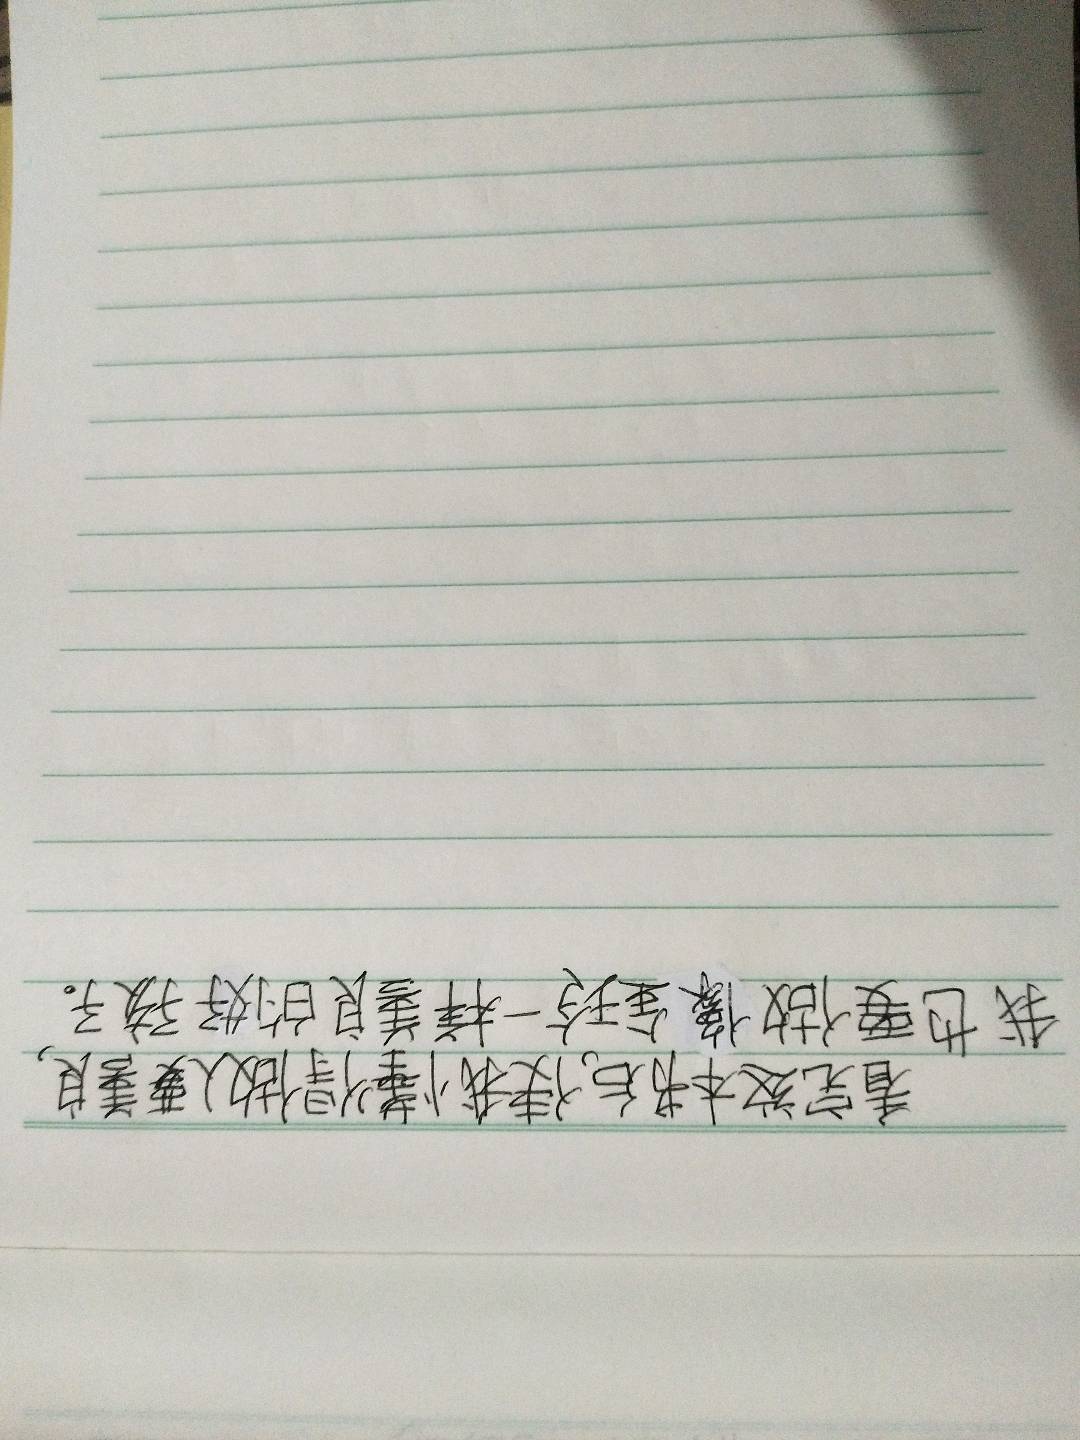 看完这本书后,使我懂得做人要善良,
我也要做像金珍一样善良的好孩子。